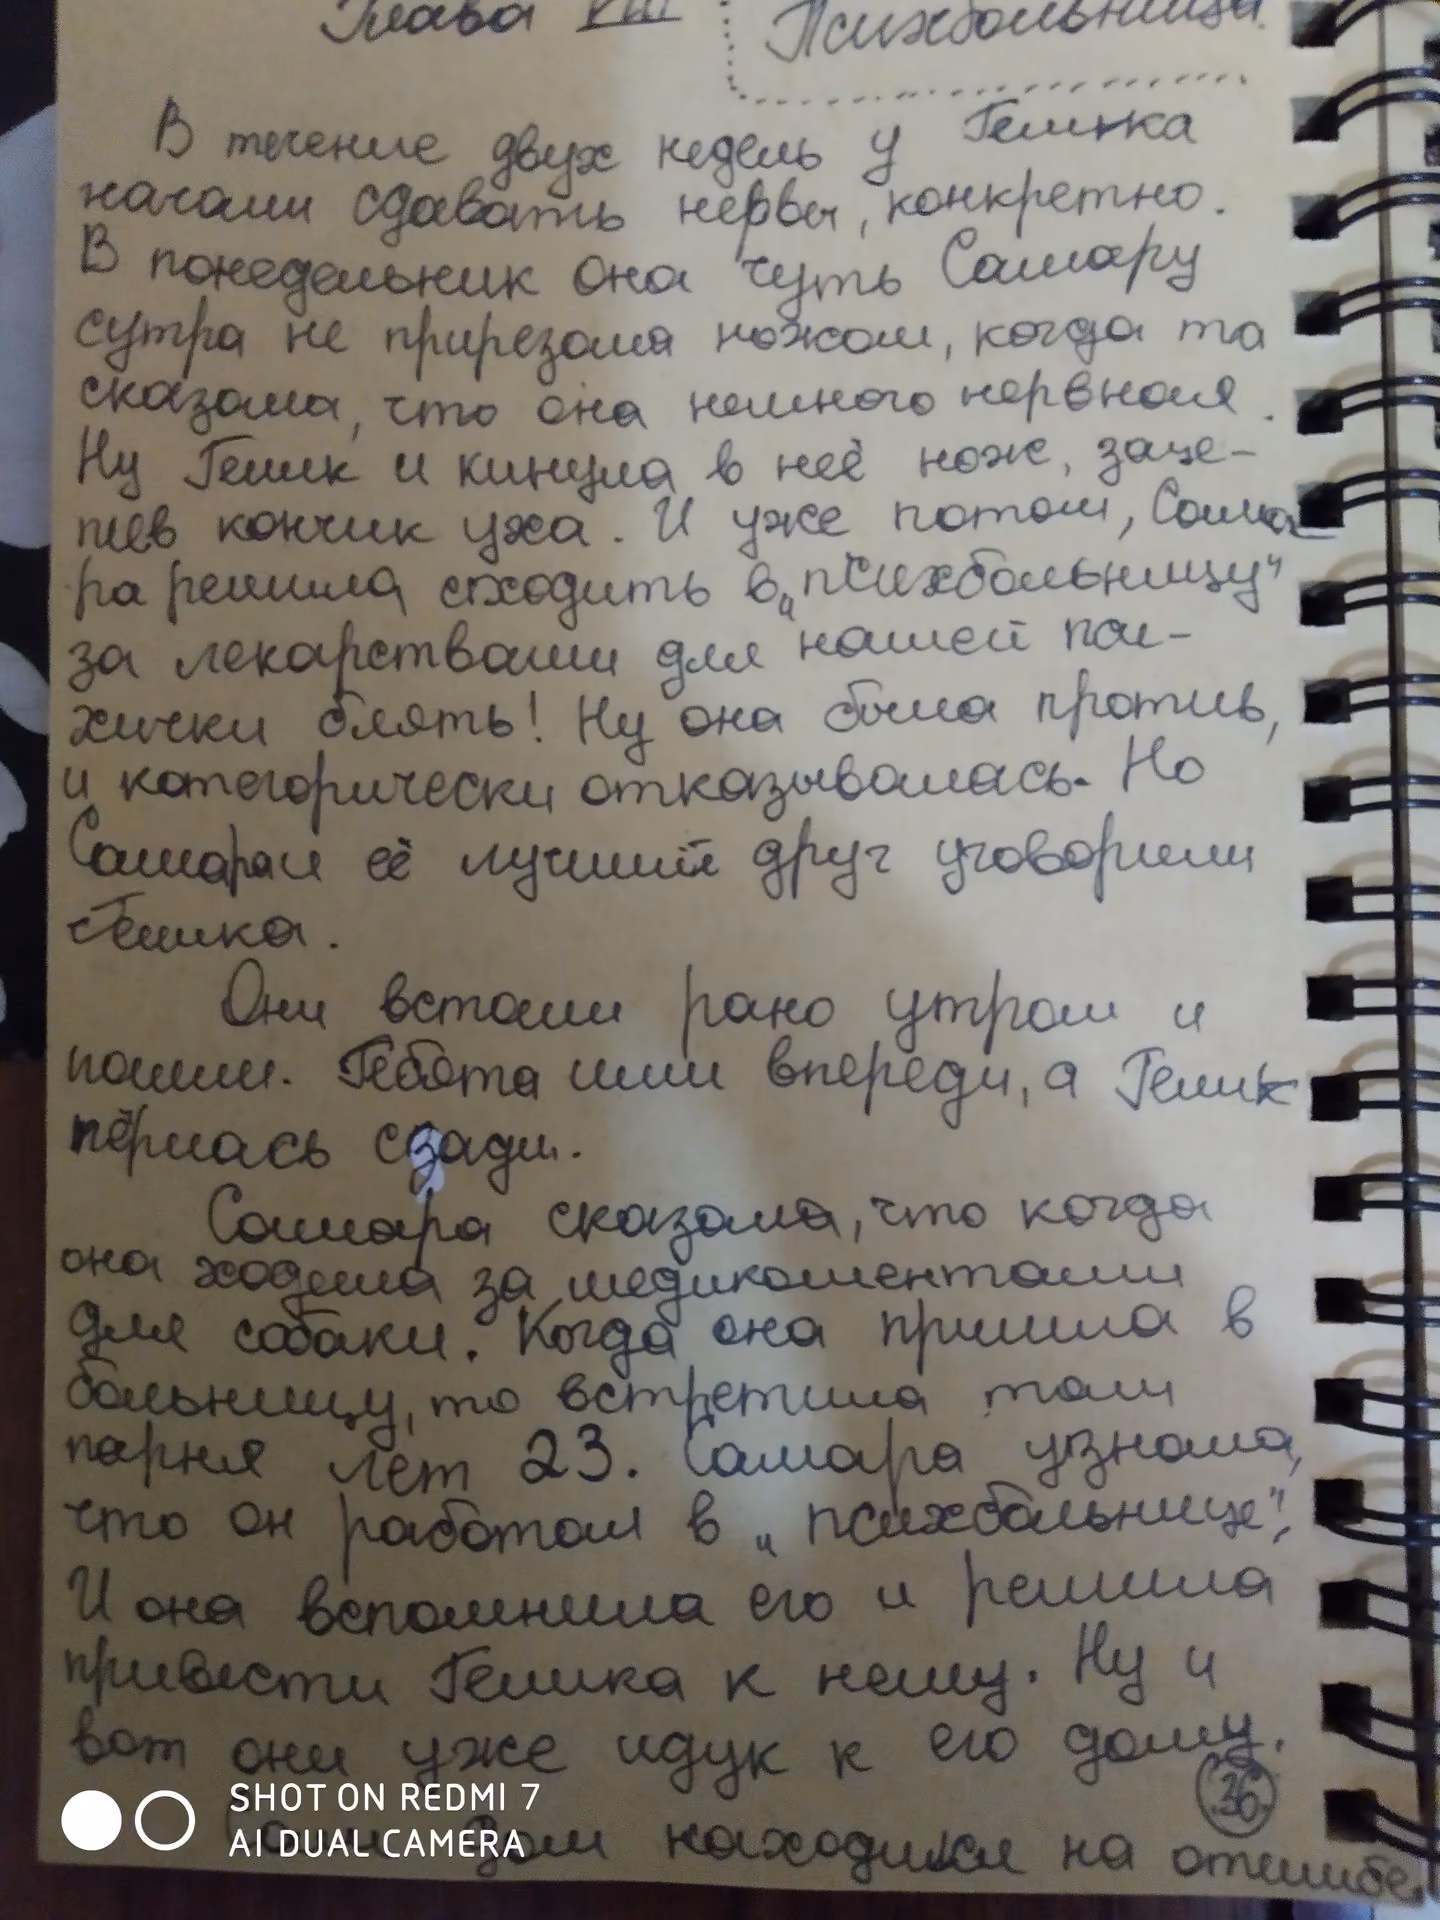 Глава VIII Психбольница.
В течение двух недель у Гемика
начали сдавать нервы, конкретно.
В понедельник она чуть Самару
сутра не прирезала ножом, когда та
сказала, что она немного нервная.
Ну Гемик и кинула в неё нож, заце-
пив кончик уха. И уже потом, Сама-
ра решила сходить в „психбольницу"
за лекарствами для нашей пси-
хички блять! Ну она была против,
и категорически отказывалась. Но
Самара и её лучший друг уговорили
Гемика.
Они встали рано утром и
пошли. Ребята шли впереди, а Гемик
пёрлась сзади.
Самара сказала, что когда
она ходила за медикоментами
для собаки. Когда она пришла в
больницу, то встретила там
парня лет 23. Самара узнала,
что он работал в „психбольнице",
И она вспомнила его и решила
привести Гемика к нему. Ну и
вот они уже идук к его дому.
36
дом находился на отшибе.
SHOT ON REDMI 7
AI DUAL CAMERA